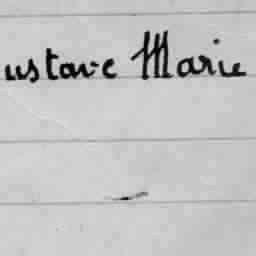 ustave Marie